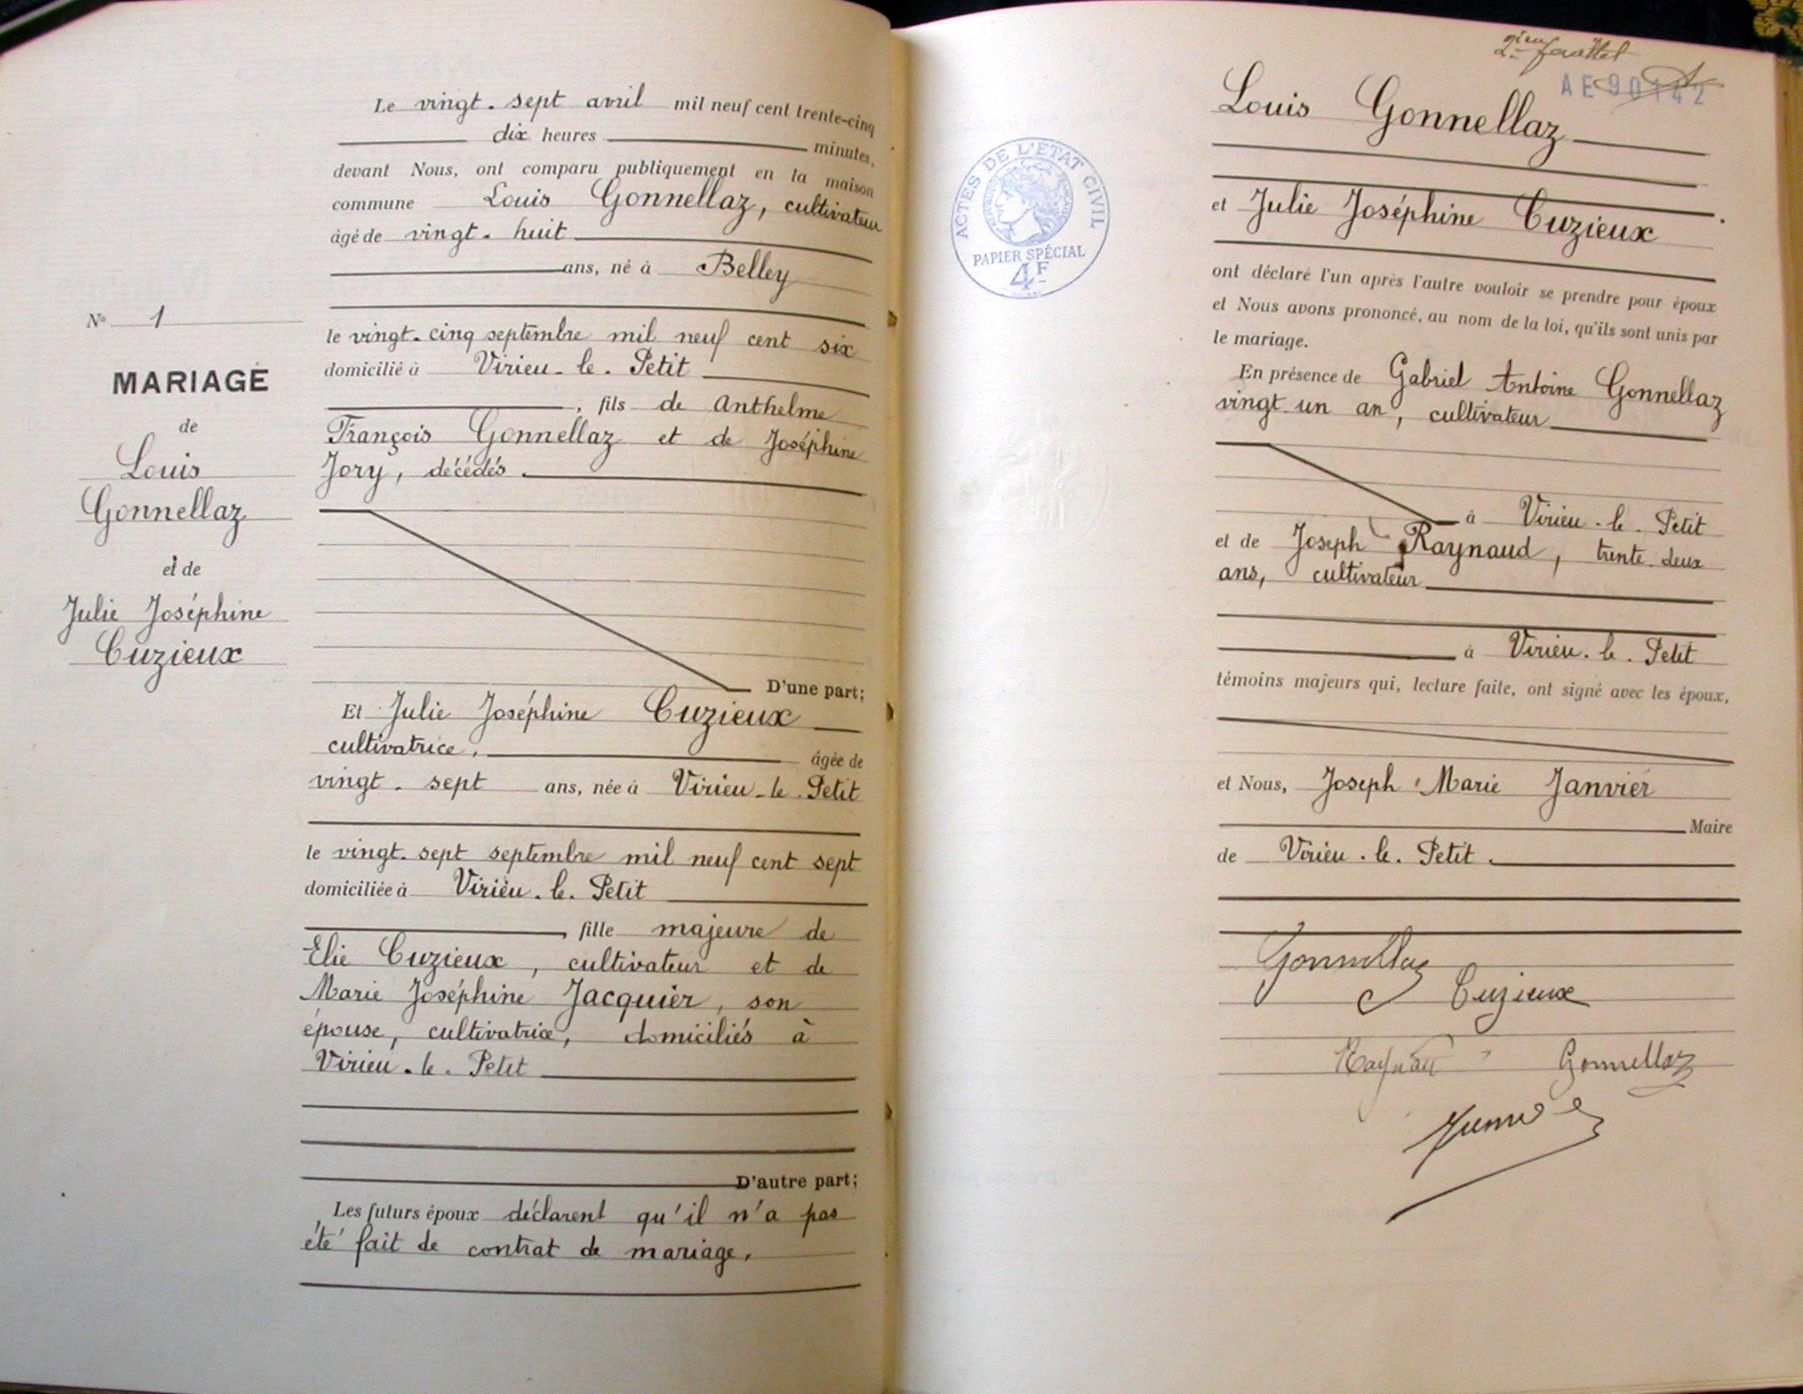 Le vingt-sept avril mil neuf cent trente-cinq
dix heures minutes,
devant Nous, ont comparu publiquement en la maison
commune Louis Gonnellaz, cultivateur
âgé de vingt-huit
ans, né à Belley
le vingt-cinq septembre mil neuf cent six
domicilié à Virieu-le-Petit
, fils de Anthelme
François Gonnellaz et de Joséphine
Jory, décédés
D'une part;
Et Julie Joséphine Cuzieux
cultivatrice, âgée de
vingt-sept ans, née à Virieu-le-Petit
le vingt-sept septembre mil neuf cent sept
domiciliée à Virieu-le-Petit
, fille majeure de
Elie Cuzieux, cultivateur et de
Marie Joséphine Jacquier, son
épouse, cultivatrice, domiciliés à
Virieu-le-Petit
D'autre part;
Les futurs époux déclarent qu'il n'a pas
été fait de contrat de mariage.
N° 1
MARIAGE
de
Louis
Gonnellaz
et de
Julie Joséphine
Cuzieux
ACTES DE L'ÉTAT CIVIL
PAPIER SPÉCIAL
4F
AE 90142
Louis Gonnellaz
et Julie Joséphine Cuzieux
ont déclaré l'un après l'autre vouloir se prendre pour époux
et Nous avons prononcé, au nom de la loi, qu'ils sont unis par
le mariage.
En présence de Gabriel Antoine Gonnellaz
vingt un an, cultivateur
à Virieu-le-Petit
et de Joseph Raynaud, trente-deux
ans, cultivateur
à Virieu-le-Petit
témoins majeurs qui, lecture faite, ont signé avec les époux,
et Nous, Joseph Marie Janvier
Maire
de Virieu-le-Petit.
Gonnellaz
Cuzieux
Raynaud Gonnellaz